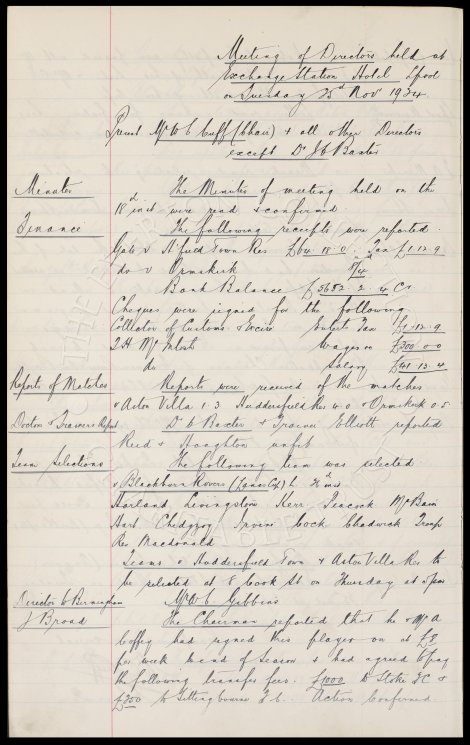 Meeting of Directors held at
Exchange Station Hotel L'pool
on Tuesday 25th Nov 1924.
Present Mr W C Cuff (Chair) & all other Directors
except Dr J C Baxter
Minutes
The Minutes of meeting held on the
18th inst were read & confirmed
Finance
The following receipts were reported.
Gate v H'field Town Res £64.18.0. Tax £1.12.9
do v Ormskirk
Bank Balance £5682.2.4 Cr
Cheques were signed for the following
Collector of Customs & Excise Entert Tax £1.12.9
T.H. McIntosh Wages £300.0.0
do Salary £41.13.4
Reports of Matches
Reports were received of the matches
v Aston Villa 1.3 Huddersfield Res 4.0 v Ormskirk 0.5.
Doctor & Trainers Report
Dr Baxter & Trainer Elliott reported
Reid & Houghton unfit
Team Selections
The following team was selected
v Blackburn Rovers (Lancs Cup) h inst
Harland Livingstone Kerr Peacock McBain
Hart Chedgzoy Irvine Cock Chadwick Troup
Res Macdonald
Teams v Huddersfield Town & Aston Villa Res to
be selected at 8 Cook St on Thursday at 5pm
Director to Birmingham
Mr W C Gibbins
J Broad
The Chairman reported that he & Mr A
Coffey had signed this player on at £8
per week to end of Season & had agreed to pay
the following transfer fees. £1000 to Stoke F.C &
£250 to Sittingbourne F.C. Action Confirmed.